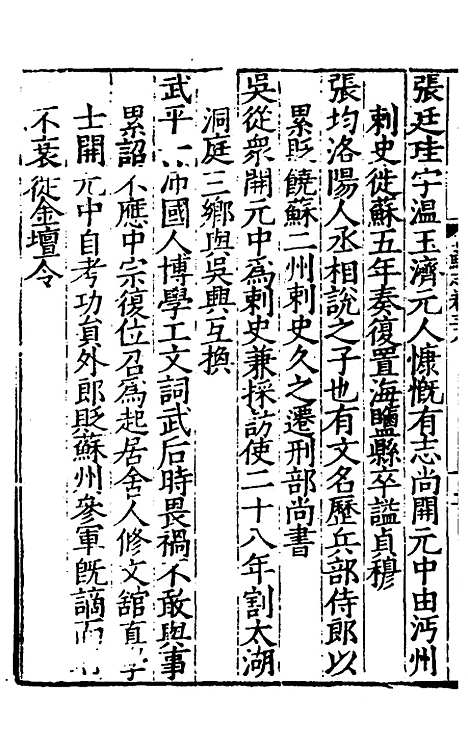 張廷珪字温玉濟元人慷慨有志尚開元中由沔州
刺史徙蘇五年奏復置海鹽縣卒諡貞穆
張均洛陽人丞相說之子也有文名歷兵部侍郎以
累貶饒蘇二州刺史久之遷刑部尚書
吳從衆開元中爲刺史兼採訪使二十八年割太湖
洞庭三鄉與吳興互換
武平一沛國人博學工文詞武后時畏禍不敢與事
累詔不應中宗復位召爲起居舍人修文舘直學
士開元中自考功員外郎貶蘇州參軍旣謫而
不衰徙金壇令